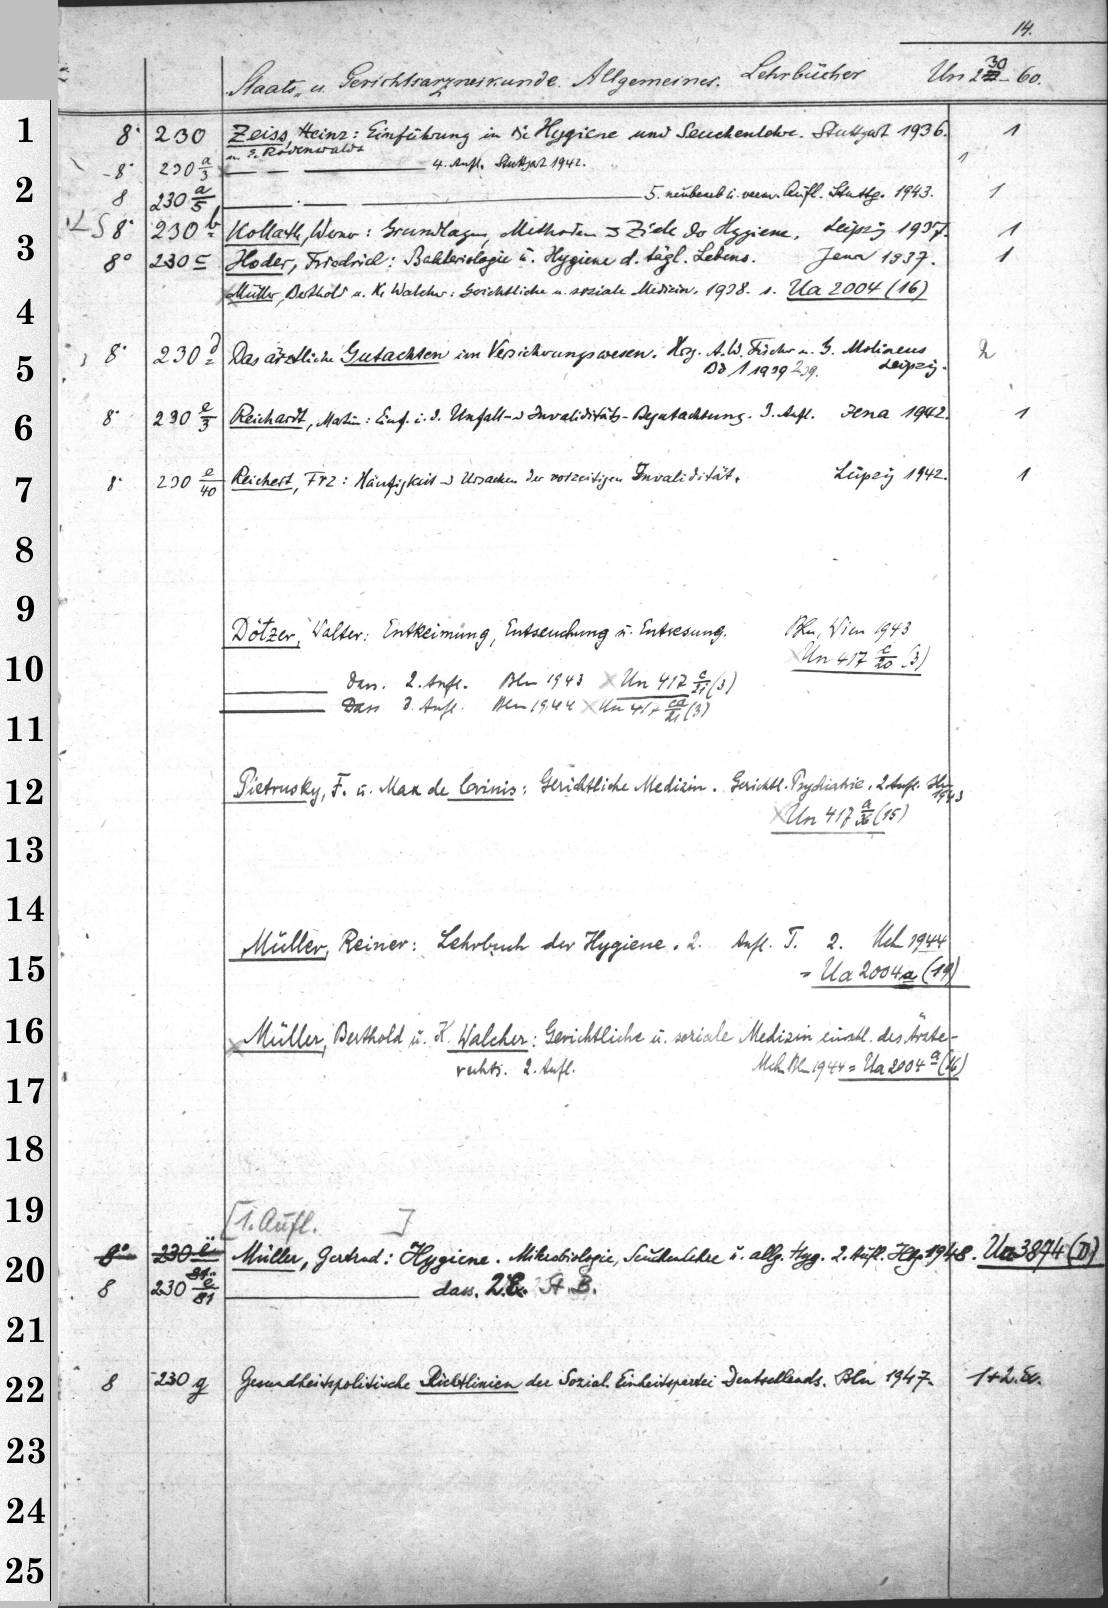 14.
Staats- u. Gerichtsarzneikunde. Allgemeines. Lehrbücher Un 230 - 60.
1 8° 230 Zeiss, Heinz: Einführung in die Hygiene und Seuchenlehre. Stuttgart 1936. 1
u. E. Rodenwaldt
8° 230 a/3 — — — 4. Aufl. Stuttgart 1942. 1
2 8 230 a/5 — . — — 5. neubearb. u. verm. Aufl. Stuttg. 1943. 1
LS 8° 230 b Kollath, Werner: Grundlagen, Methoden u Ziele der Hygiene. Leipzig 1937. 1
3 8° 230 c Hoder, Friedrich: Bakteriologie u. Hygiene d. tägl. Lebens. Jena 1937. 1
4 Müller, Berthold u. K. Walcher: Gerichtliche u. soziale Medizin. 1938. s. Ua 2004 (16)
5 8° 230 d Das ärztliche Gutachten im Versicherungswesen. Hrsg. A. W. Fischer u. G. Molineus 2
Bd 1 1939 2 39. Leipzig.
6 8° 230 e/3 Reichardt, Martin: Einf. i. d. Unfall- u Invaliditäts-Begutachtung. 3. Aufl. Jena 1942. 1
7 8° 230 e/40 Reichert, Frz: Häufigkeit u Ursachen der vorzeitigen Invalidität. Leipzig 1942. 1
8
9 Dötzer, Walter: Entkeimung, Entseuchung u. Entwesung. Bln, Wien 1943
10 Un 417 c/20 (3)
— Dass. 2. Aufl. Bln 1943 Un 417 c/21 (3)
11 — Dass 3. Aufl. Bln 1944 Un 417 ca/21 (3)
12 Pietrusky, F. u. Max de Crinis: Gerichtliche Medizin. Gerichtl. Psychiatrie. 2. Aufl.
1943
Un 417 a/36 (15)
13
14
Müller, Reiner: Lehrbuch der Hygiene. 2. Aufl. T. 2. Mch 1944
15 = Ua 2004 a (19)
16 Müller, Berthold u. K. Walcher: Gerichtliche u. soziale Medizin einschl. des Ärzte-
rechts. 2. Aufl. Mch Bln 1944 = Ua 2004 a (16)
17
18
19 [1. Aufl. ]
20 8° 230 e/81 Müller, Gertrud: Hygiene. Mikrobiologie, Seuchenlehre u. allg. Hyg. 2. Aufl. 1948. Ua 3874 (D)
8 230 e/81 — dass. 2. St. B.
21
22 8 230 g Gesundheitspolitische Richtlinien der Sozial. Einheitspartei Deutschlands. Bln 1947. 1+2. Ex.
23
24
25